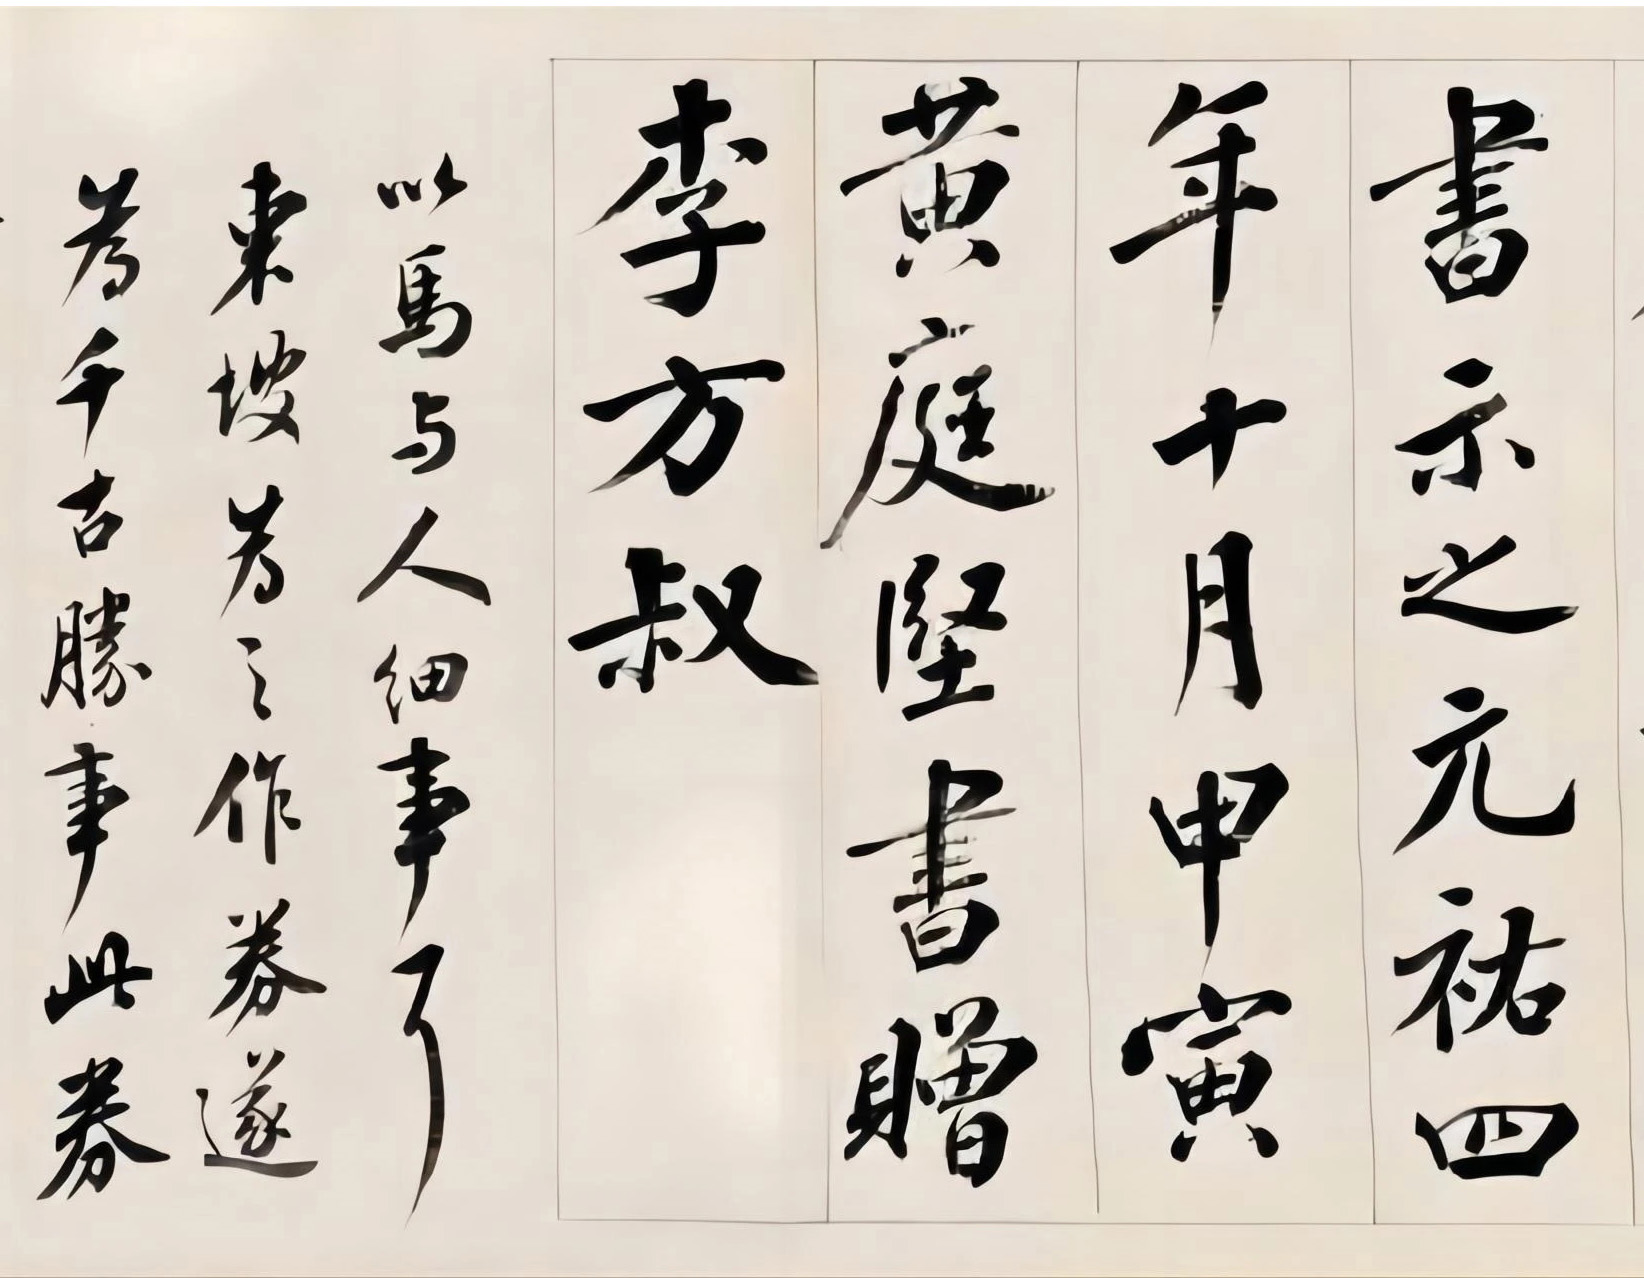 書示之元祐四
年十月甲寅
黄庭堅書贈
李方叔
以馬与人細事了
東坡為之作券遂
為千古勝事此券